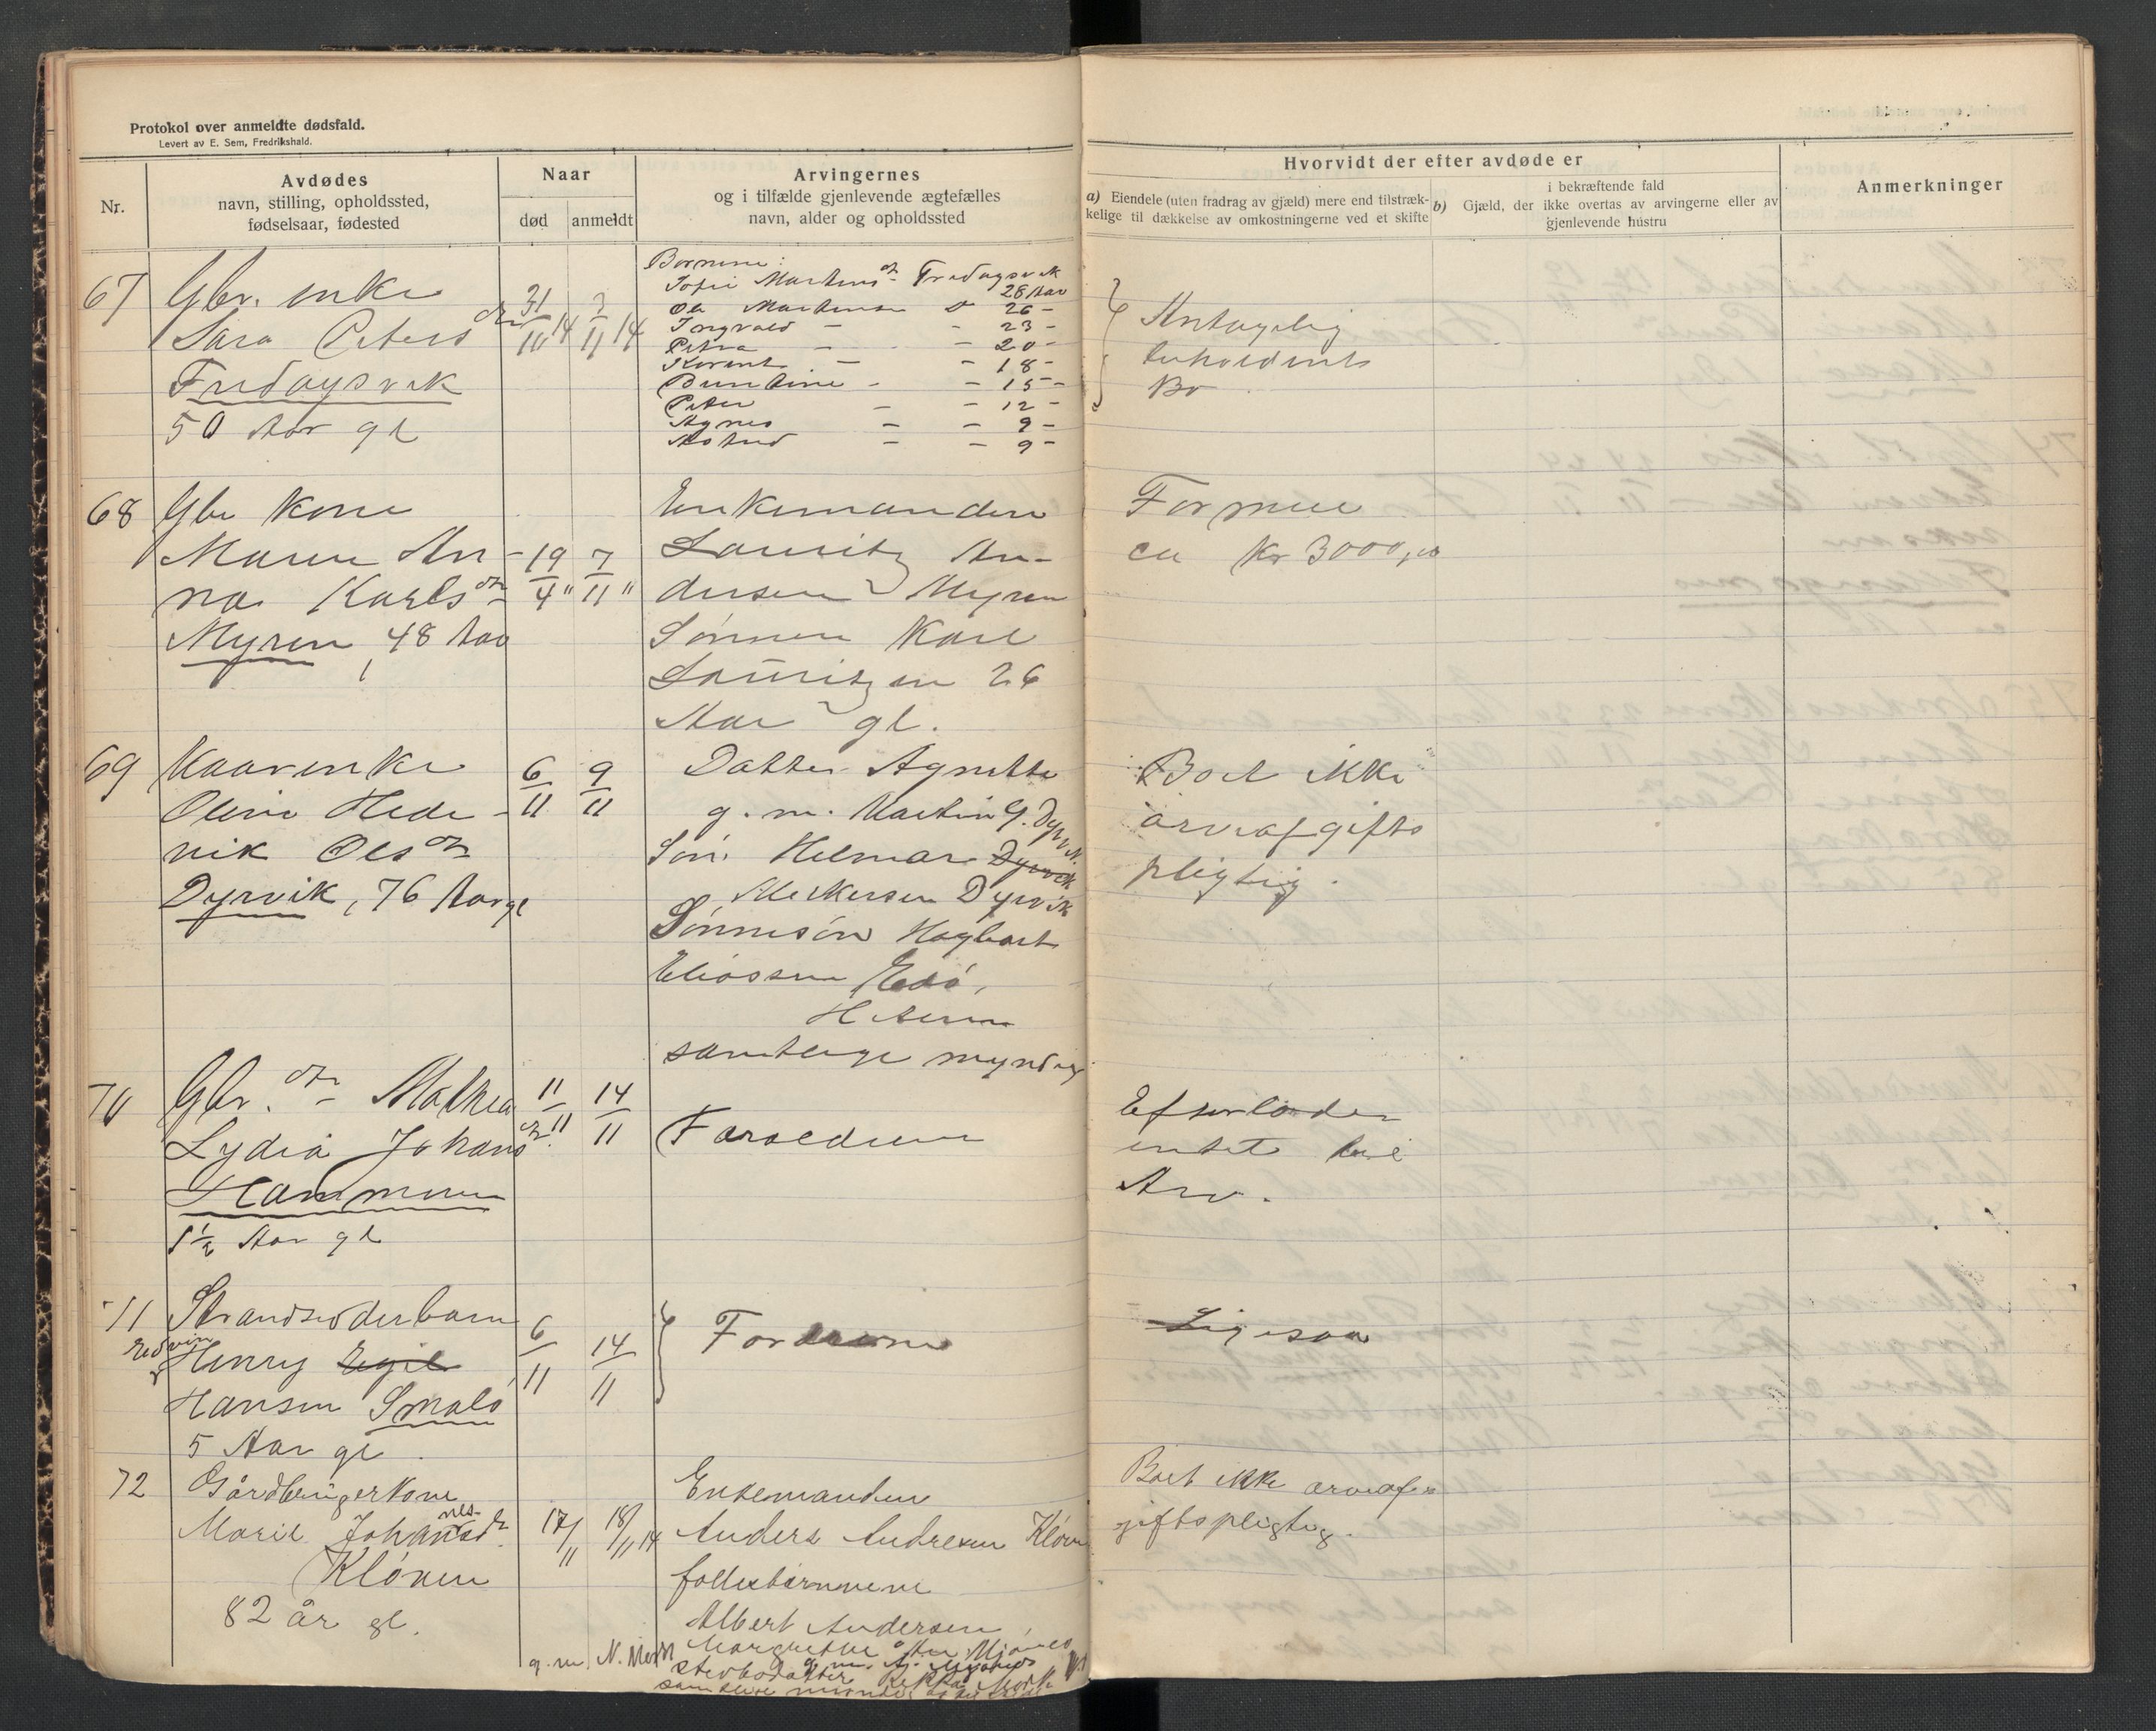 Protokol over anmeldte dødsfald.
Levert av E. Sem, Fredrikshald.
Nr.
Avdødes
navn, stilling, opholdssted,
fødselsaar, fødested
Naar
død
anmeldt
Arvingernes
og i tilfælde gjenlevende ægtefælles
navn, alder og opholdssted
Hvorvidt der efter avdøde er
a) Eiendele (uten fradrag av gjæld) mere end tilstræk-
kelige til dækkelse av omkostningerne ved et skifte
b) Gjæld, der
i bekræftende fald
ikke overtas av arvingerne eller av
gjenlevende hustru
Anmerkninger
67
Gbr. enke
Sara Petersdtr
Fredagsvik
50 Aar gl
31/10 14
3/11 14
Børnene:
Sofie Martensdtr Fredagsvik
28 Aar
Ole Martensen D 26 –
Ingvald – – 23 –
Petra – – 20 –
– – 18 –
– – 15 –
Peter – – 12 –
Agnes – – 9 –
Astrid – – 9 –
Antagelig
beholdent
Bo
68
Gbr kone
Maren An-
na Karlsdtr
Myren, 48 Aar
19/4 "
7/11 "
Enkemanden
Lauritz An-
dersen Myren
Sønnen Karl
Lauritzen 26
Aar gl.
Formue
ca Kr 3000,00
69
Kaarenke
Oline Hede-
vik Olsdtr
Dyrvik, 76 Aar gl
6/11
9/11
Datter Agnethe
g. m. Martin G. Dyrvik.
Søn Helmar Dyrvik
Dyrvik
Sønnesøn Hagbart
Eliassen Edø,
Hiteren
samtlige myndige
Boet ikke
arveafgifts
pligtig.
70
Gbr. dtr – Mathea
Lydia Johansdtr.
Hammeren
1½ Aar gl
11/11
14/11
Forældrene
Efterlader
intet til
Arv.
71
Strandsidderbarn
Edvin
Henry Egil
Hansen Smalø
5 Aar gl.
6/11
14/11
Forældrene
Ligesaa
72
Gårdbrugerkone
Marie Johansdtr.
nes
Kløven
82 år gl.
17/11
18/11 14
Enkemanden
Anders Andresen Kløven
fællesbørnene
Albert Andersen,
g. m. N. Mørk
Boet ikke arveaf-
giftspligtig.